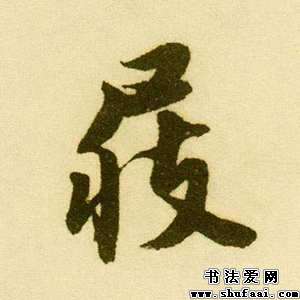 屐
书法爱网
www.shufaai.com